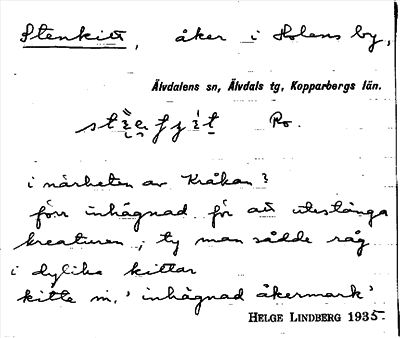 Stenkitt, åker i Holens by,
Älvdalens sn, Älvdals tg, Kopparbergs län.
Ro.
i närheten av Kråkan 3
förr inhägnad för att utestänga
kreaturen; ty man sådde råg
i dylika kittar
kitte m. 'inhägnad åkermark'
HELGE LINDBERG 1935.